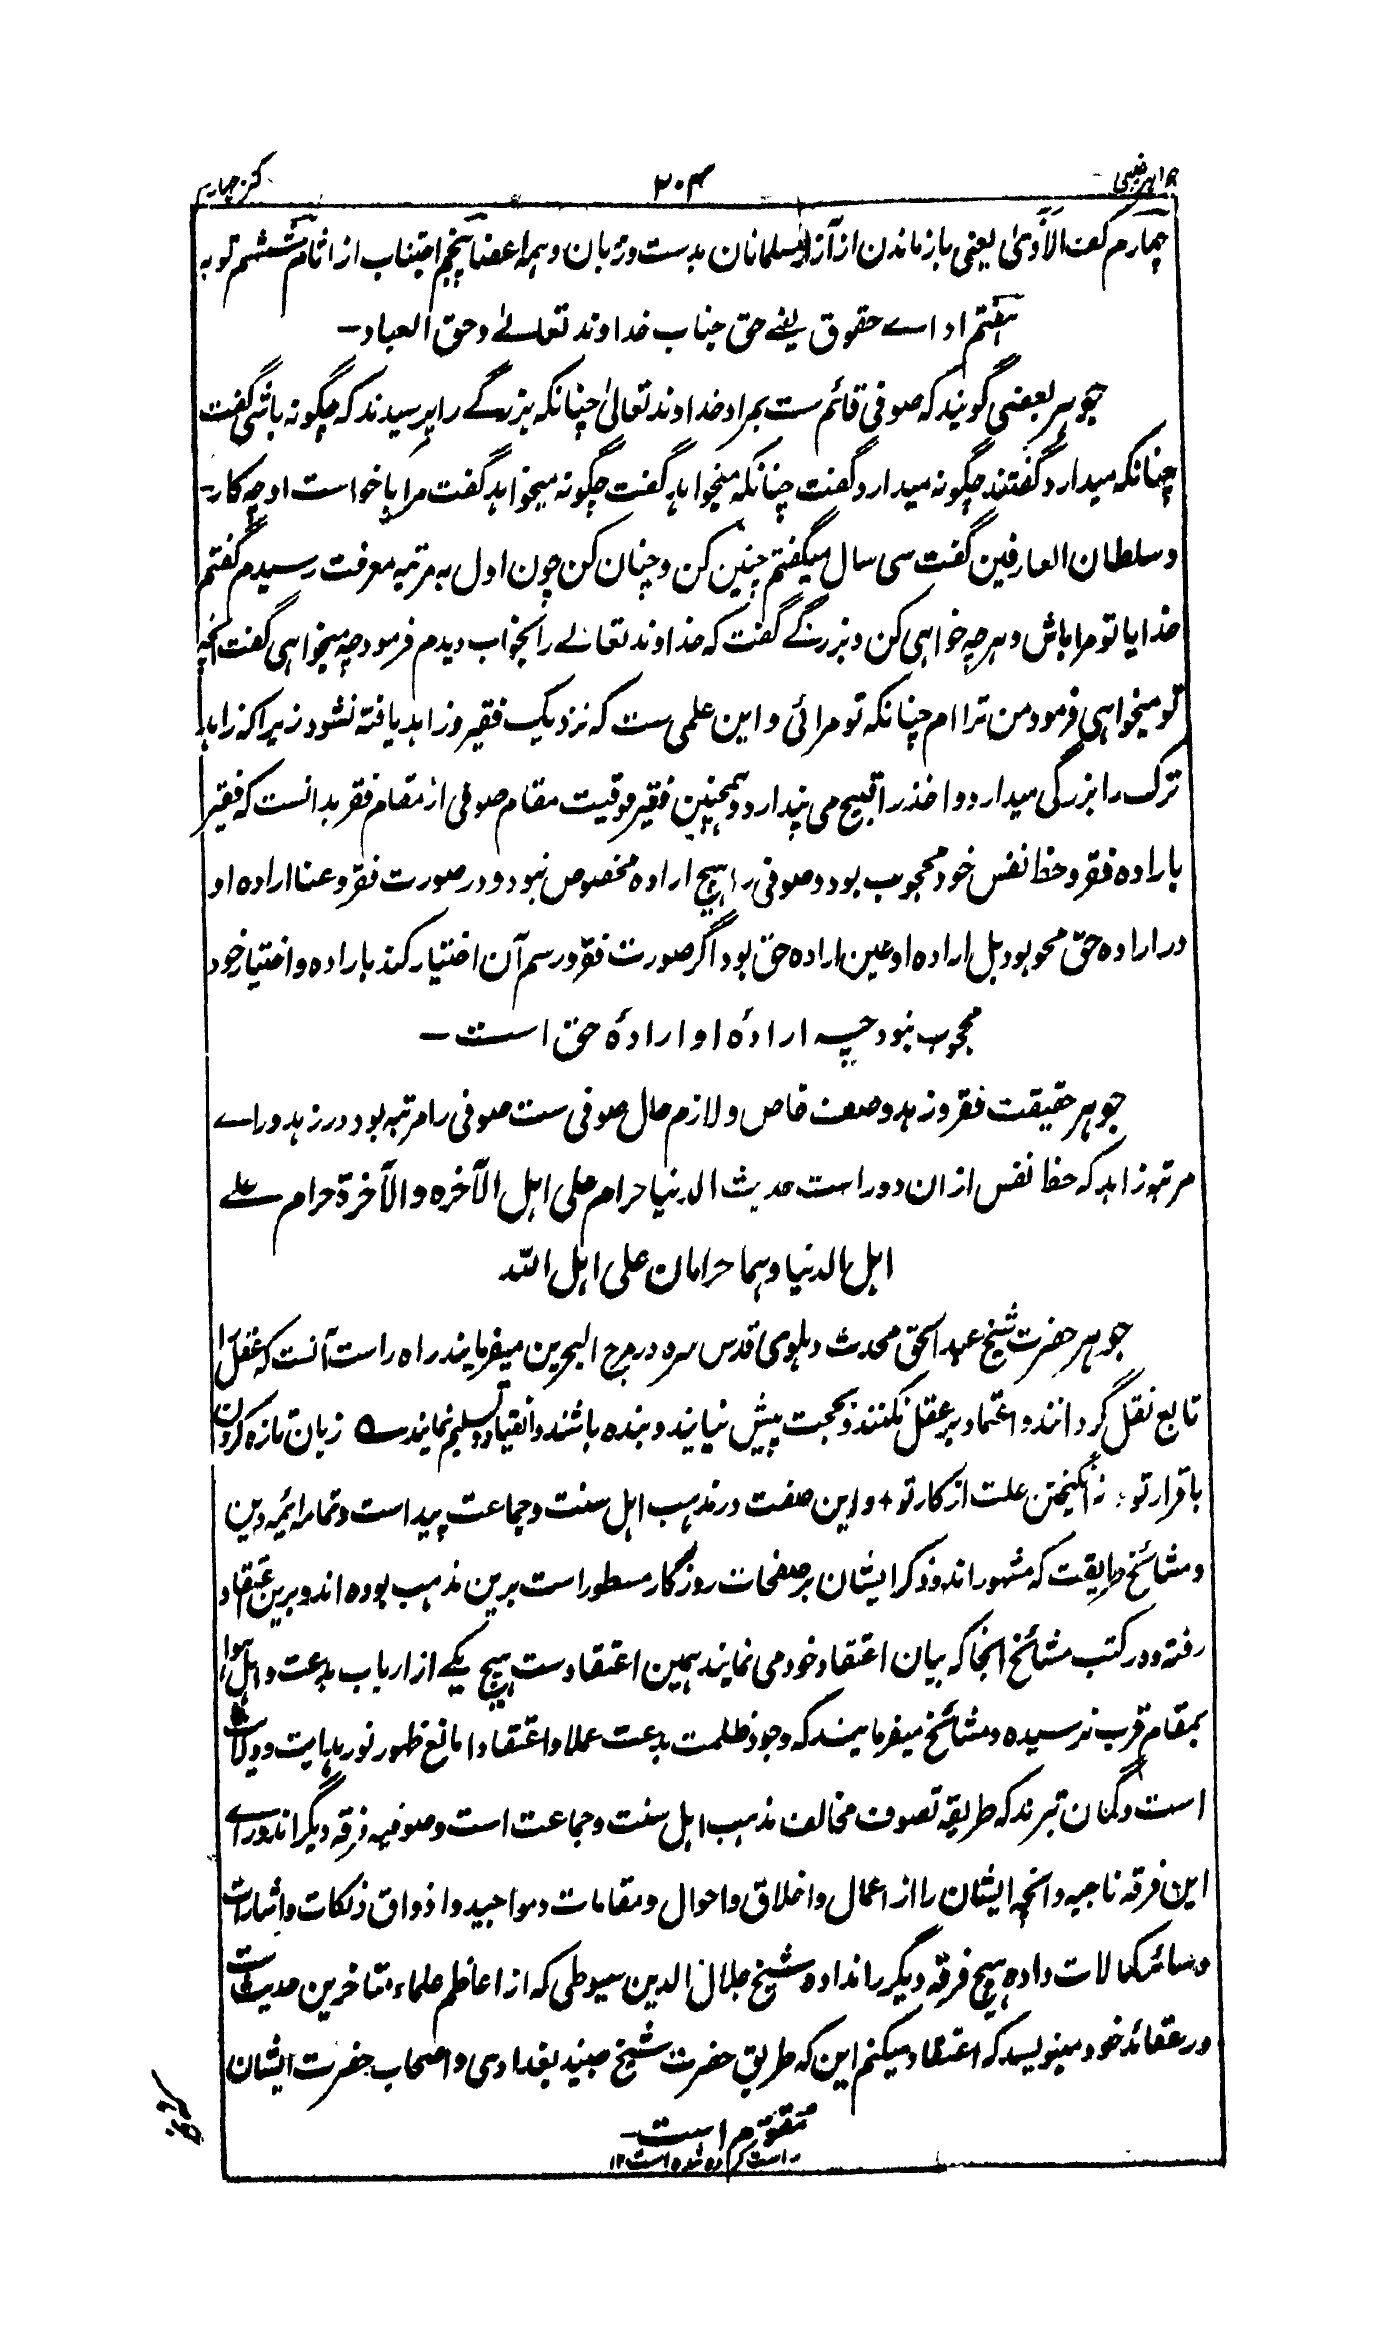 جواہر غیبی ۳۰۴ کنز چہارم
چہارم کف الاذیٰ یعنی باز ماندن از آزار مسلمانان بدست و زبان و ہمہ اعضا پنجم اجتناب از اثام ششم توبہ
ہفتم اداے حقوق یعنے حق جناب خداوند تعالےٰ و حق العباد –
جوہر بعضی گویند کہ صوفی قائم ست بمراد خداوند تعالیٰ چنانکہ بزرگے را پرسیدند کہ چگونہ باشی گفت
چنانکہ میدارد گفتند چگونہ میدارد گفت چنانکہ میخواہد گفت چگونہ میخواہد گفت مرا با خواست او چہ کار –
و سلطان العارفین گفت سی سال میگفتم چنین کن و چنان کن چون اول بہ مرتبہ معرفت رسیدم گفتم
خدایا تو مرا باش و ہرچہ خواہی کن و بزرگے گفت کہ خداوند تعالے را بخواب دیدم فرمود چہ میخواہی گفت انچہ
تو میخواہی فرمود من ترا ام چنانکہ تو مرائی و این علمی ست کہ نزدیک فقیر و زاہد یافتہ نشود زیرا کہ زاہد
ترک را بزرگی میدارد و اخذ را قبیح می پندارد و ہمچنین فقیر فوقیت مقام صوفی از مقام فقر بدانست کہ فقیر
بارادہ فقر و حظ نفس خود محجوب بود و صوفی را ہیچ ارادہ مخصوص نبود و در صورت فقر و غنا ارادہ او
در ارادہ حق محو بود بل ارادہ او عین ارادہ حق بود اگر صورت فقر و رسم آن اختیار کند بارادہ و اختیار خود
محجوب نبود چہ ارادۂ او ارادۂ حق است –
جوہر حقیقت فقر و زہد وصف خاص و لازم حال صوفی ست صوفی را مرتبہ بود در زہد وراے
مرتبۂ زاہد کہ حظ نفس از ان دور است حدیث الدنیا حرام علی اہل الآخرہ والآخرۃ حرام علے
اہل الدنیا وہما حرامان علی اہل اللہ
جوہر حضرت شیخ عبد الحق محدث دہلوی قدس سرہ در مرج البحرین میفرمایند راہ راست آنست کہ عقل را
تابع نقل گردانند و اعتماد بر عقل نکنند و بحجت پیش نیایند و بندہ باشند و انقیاد و تسلیم نمایند ؎ زبان تازہ کردن
باقرار تو ٭ نہ انگیختن علت از کار تو + و این صفت در مذہب اہل سنت و جماعت پیداست و تمام ایمہ دین
و مشائخ طریقت کہ مشہور اند و ذکر ایشان بر صفحات روزگار مسطور است برین مذہب بودہ اند و برین اعتقاد
رفتہ و در کتب مشائخ انجا کہ بیان اعتقاد خود می نمایند ہمین اعتقاد ست ہیچ یکے از ارباب بدعت و اہل ہوا
بمقام قرب نرسیدہ و مشائخ میفرمایند کہ وجود ظلمت بدعت عملا و اعتقادا مانع ظہور نور ہدایت و ولایت
است و گمان نبرند کہ طریقہ تصوف مخالف مذہب اہل سنت و جماعت است و صوفیہ فرقہ دیگر اند وراے
این فرقہ ناجیہ و انچہ ایشان را از اعمال و اخلاق و احوال و مقامات و مواجید و اذواق و نکات و اشارات
و سائر کمالات دادہ ہیچ فرقہ دیگر را ندادہ شیخ جلال الدین سیوطی کہ از اعاظم علماء متاخرین حدیث است
در عقائد خود مینویسد کہ اعتقاد میکنم این کہ طریق حضرت شیخ جنید بغدادی و اصحاب حضرت ایشان
مقوّم است
راست کردہ شدہ است ۱۲